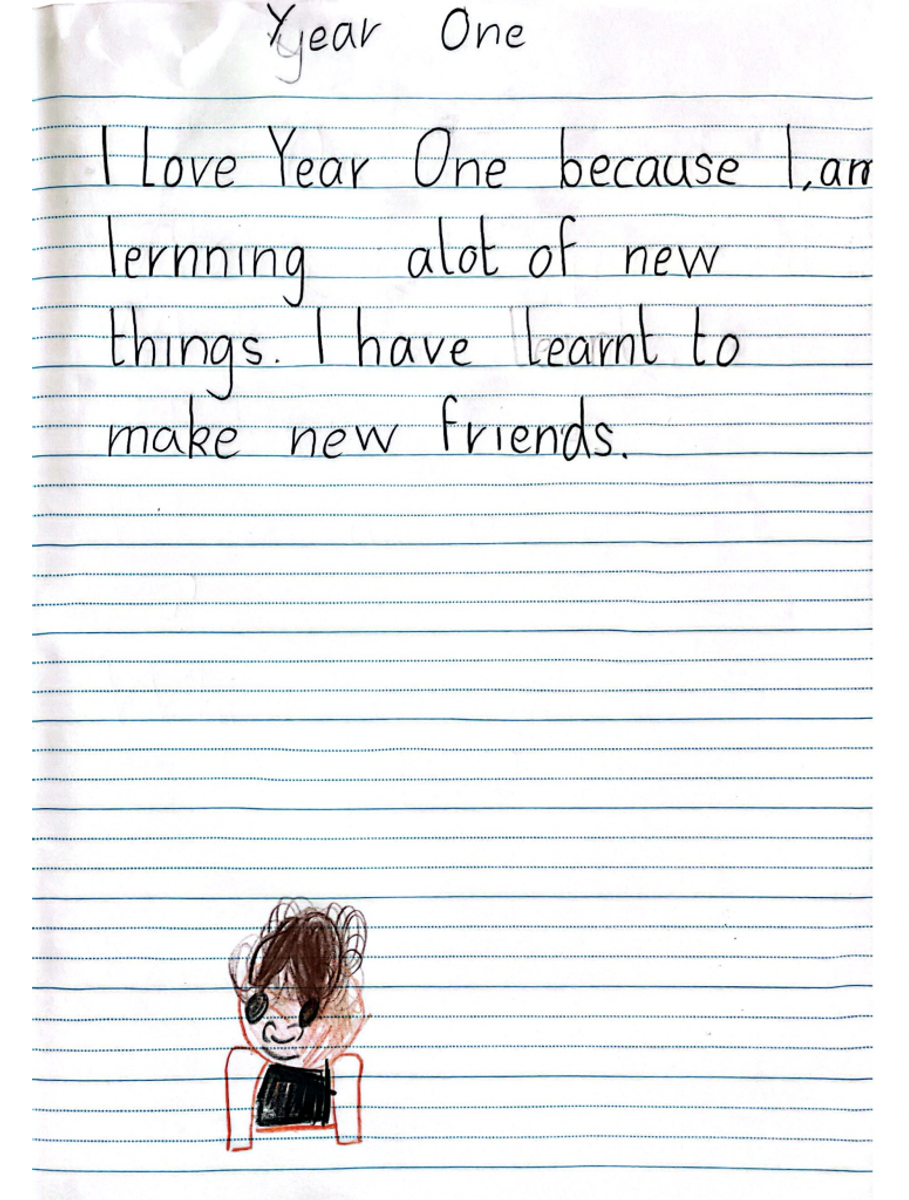 Year One
I Love Year One because I,am
lernning alot of new
things. I have learnt to
make new friends.